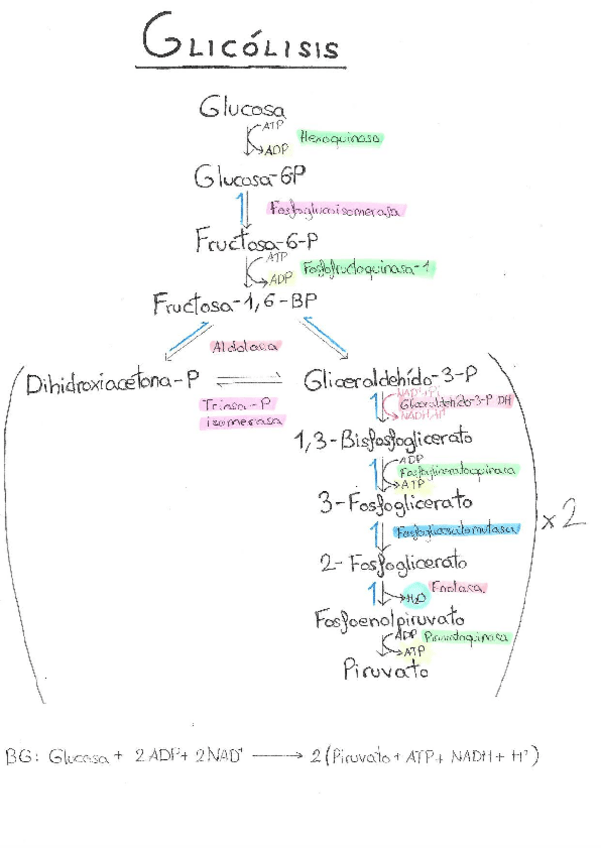 GLICÓLISIS
Glucosa
ATP
Hexoquinasa
ADP
Glucosa-6P
Fosfoglucoisomerasa
Fructosa-6-P
ATP
Fosfofructoquinasa-1
ADP
Fructosa-1,6-BP
Aldolasa
Dihidroxiacetona-P
Gliceraldehído-3-P
Triosa-P
isomerasa
Gliceraldehído-3-P DH
NADH+H
1,3-Bisfosfoglicerato
ADP
Fosfogliceratoquinasa
ATP
3-Fosfoglicerato
x2
Fosfogliceratomutasa
2-Fosfoglicerato
Enolasa
H2O
Fosfoenolpiruvato
ADP
Piruvatoquinasa
ATP
Piruvato
BG: Glucosa + 2 ADP + 2 NAD+ → 2 (Piruvato + ATP + NADH + H+)